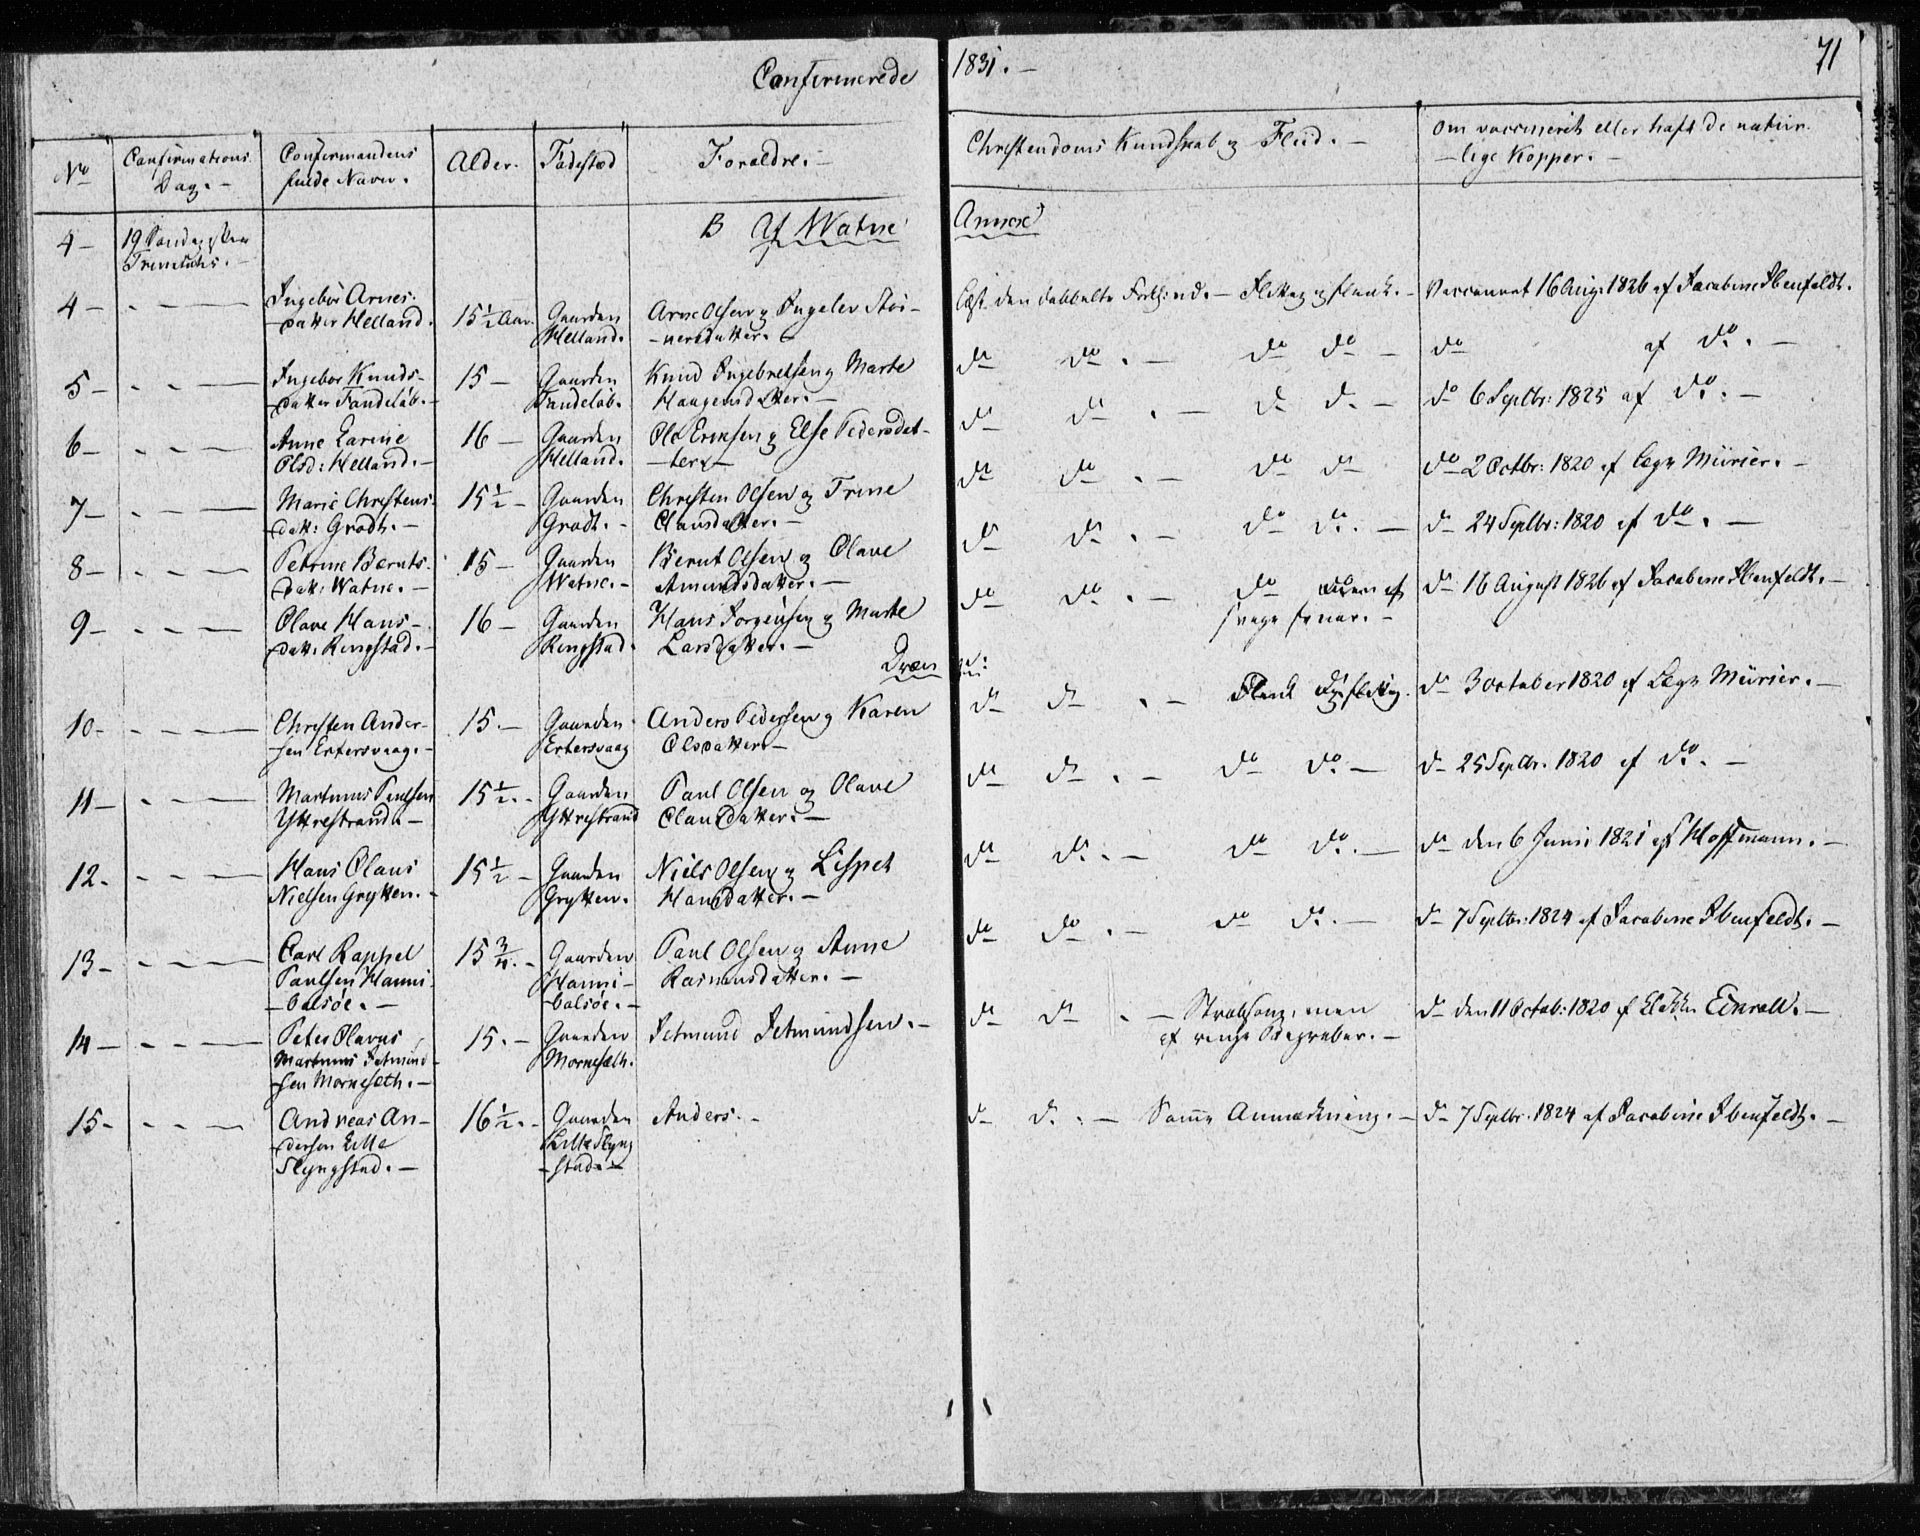 Confirmerede 1831. —
71
No
Confirmations Dag. —
Confirmandens fulde Navn.
Alder.
Fødested
Forældre. —
Christendoms Kundskab og Fliid. —
Om vaccineret eller haft de natur-
-lige Kopper. —
4 —
19 Søndag
Trinitatis. —
B Af Watne
Annex
4 —
Ingebor Arnes-
datter Helland.
15 1/2 Aar.
Gaarden
Helland.
Arne Olsen og Ingelev Stei-
-nersdatter. —
Flittig og
Vaccineret 16 Aug: 1826 af Jacobine Ibenfeldt.
5 —
Ingebor Knuds-
datter Tandeløb. —
15 —
Gaarden
Tandeløb.
Knud Ingebretsen og Marte
Haagensdatter. —
do do . — do do —
do af do. —
6 —
Anne Larine
Olsd: Helland. —
16 —
Gaarden
Helland.
Ole Ericksen og Else Pedersdat-
-ter. —
do do . — do do —
do 6 Septbr: 1825 af do. —
7 —
Marie Christens-
dat: Grodt. —
15 1/2 —
Gaarden
Grodt. —
Christen Olsen og Trine
Clausdatter. —
do do . — do do
do 2 Octbr: 1820 af Müsier. —
8 —
Petrine Bernts-
dat: Watne. —
15 —
Gaarden
Watne. —
Bernt Olsen og Olave
Amundsdatter. —
do do . — do do. —
do 24 Septbr: 1820 af do. —
9 —
Olave Hans-
dat: Ringstad. —
16 —
Gaarden
Ringstad.
Hans Jørgensen og Marte
Larsdatter. —
do do . — do
do 16 August 1826 af Jacobine Ibenfeldt. —
10 —
Christen Ander-
sen Eitersvaag. —
15. —
Gaarden
Eitersvaag
Anders Pedersen og Karen
Olsdatter. —
do do . —
do 3 october 1820 af Müsier. —
11 —
Martinus Paulsen
Yttrestrand. —
15 1/2. —
Gaarden
Yttrestrand
Paul Olsen og Olave
Clausdatter. —
do do . — do do. —
do 25 Septbr. 1820 af do. —
12.
Hans Olaus
Nielsen Grytten. —
15 1/2 —
Gaarden
Grytten.
Niels Olsen og Lispet
Hansdatter. —
do do. — do do. —
do den 6 Juni 1821 af Hoffmann. —
13 —
Carl Rappel
Paulsen Hanni-
-balsøe. —
15 3/4. —
Gaarden
Hanni-
balsøe. —
Paul Olsen og Anne
Rasmusdatter. —
do do . — do do. —
do 7 Septbr: 1824 af Jacobine Ibenfeldt. —
14 —
Peter Olavus
Martinus Jetmund-
sen Mornesæth. —
15. —
Gaarden
Mornesæth.
Jetmund Jetmundsen. —
do do . — Strebsom, men
af ringe Begreber. —
do den 11 Octob: 1820 af —
15 —
Andreas An-
dersen Lille
Slyngstad. —
16 1/2. —
Gaarden
Lille Slyng
stad. —
Anders. —
do do. — Samme Anmærkning. —
do 7 Septbr. 1824 af Jacobine Ibenfeldt. —